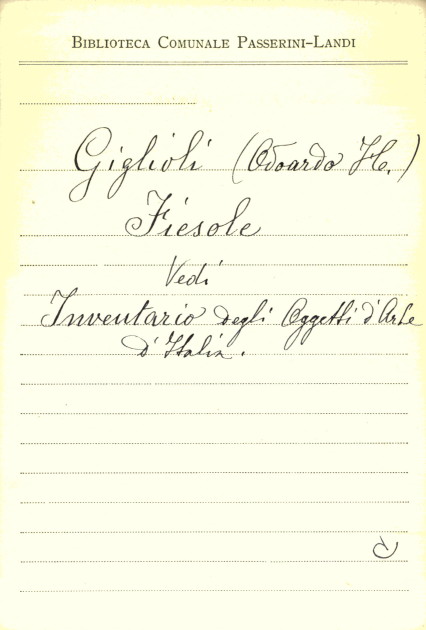 BIBLIOTECA COMUNALE PASSERINI-LANDI
Giglioli (Odoardo H.)
Fiesole
Vedi
Inventario degli Oggetti d'Arte
d'Italia.